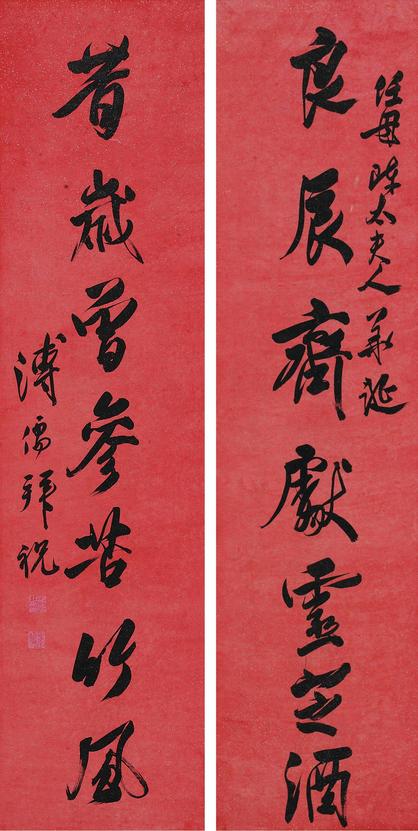 任母陳太夫人華誕
良辰齊獻靈芝酒
昔歲曾參苦竹風
溥儒拜祝